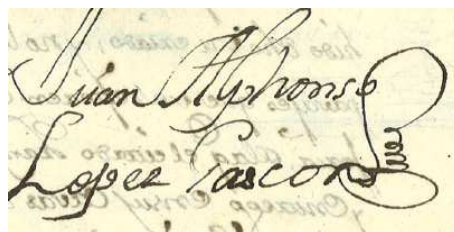 Juan Alphonso
Lopez Gascon